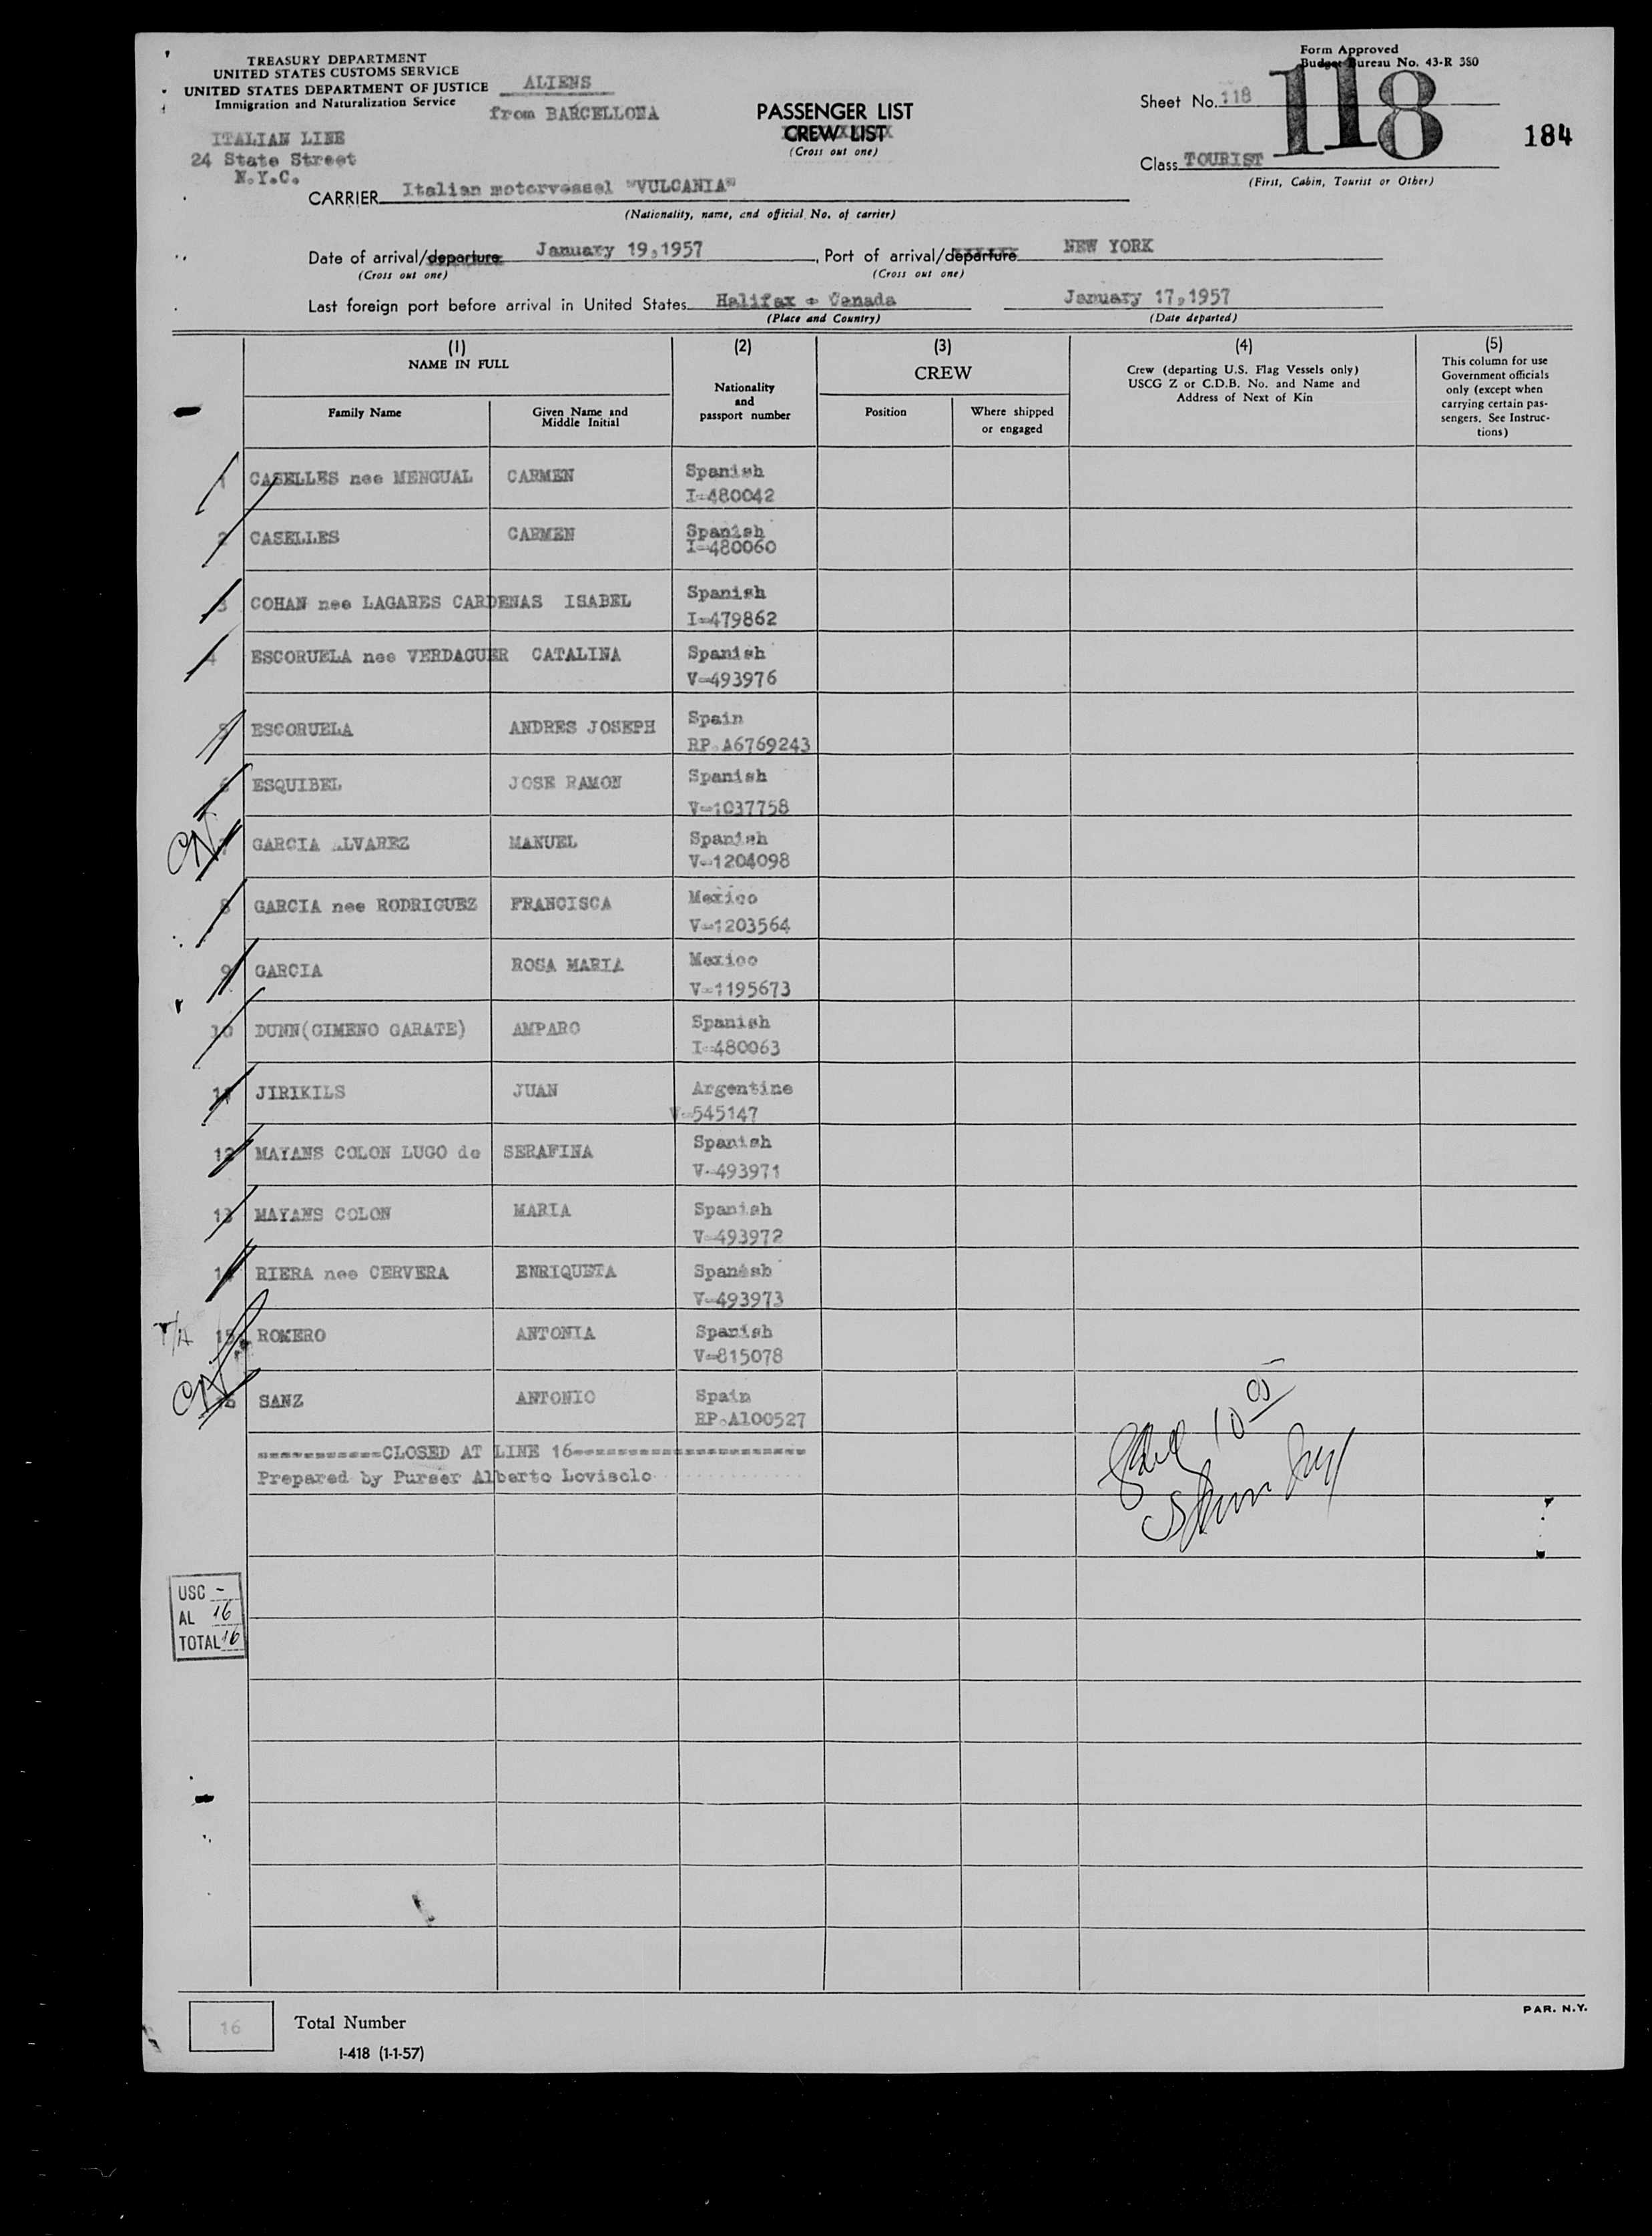 TREASURY DEPARTMENT
UNITED STATES CUSTOMS SERVICE
UNITED STATES DEPARTMENT OF JUSTICE
Immigration and Naturalization Service
ALIENS
from BARCELLONA
ITALIAN LINE
24 State Street
N.Y.C.
PASSENGER LIST
CREW LIST
(Cross out one)
Form Approved
Budget Bureau No. 43-R 380
Sheet No. 118
118
184
Class TOURIST
(First, Cabin, Tourist or Other)
CARRIER Italian motorvessel "VULCANIA"
(Nationality, name, and official No. of carrier)
Date of arrival/departure January 19,1957, Port of arrival/departure NEW YORK
(Cross out one) (Cross out one)
Last foreign port before arrival in United States Halifax - Canada January 17,1957
(Place and Country) (Date departed)
(1) NAME IN FULL
Family Name
Given Name and Middle Initial
(2) Nationality and passport number
(3) CREW
Position
Where shipped or engaged
(4) Crew (departing U.S. Flag Vessels only) USCG Z or C.D.B. No. and Name and Address of Next of Kin
(5) This column for use Government officials only (except when carrying certain passengers. See Instructions)
1 CASELLES nee MENGUAL CARMEN Spanish
I-480042
2 CASELLES CARMEN Spanish
I-480060
3 COHAN nee LAGARES CARDENAS ISABEL Spanish
I-479862
4 ESCORUELA nee VERDAGUER CATALINA Spanish
V-493976
5 ESCORUELA ANDRES JOSEPH Spain
RP.A6769243
6 ESQUIBEL JOSE RAMON Spanish
V-1037758
7 GARCIA ALVAREZ MANUEL Spanish
V-1204098
8 GARCIA nee RODRIGUEZ FRANCISCA Mexico
V-1203564
9 GARCIA ROSA MARIA Mexico
V-1195673
10 DUNN(GIMENO GARATE) AMPARO Spanish
I-480063
11 JIRIKILS JUAN Argentine
V-545147
12 MAYANS COLON LUGO de SERAFINA Spanish
V-493971
13 MAYANS COLON MARIA Spanish
V-493972
14 RIERA nee CERVERA ENRIQUETA Spanish
V-493973
T/A 15 ROMERO ANTONIA Spanish
V-815078
16 SANZ ANTONIO Spain
RP.A100527
-----------CLOSED AT LINE 16--------------------
Prepared by Purser Alberto Lovisolo
USC -
AL 16
TOTAL 16
16 Total Number
I-418 (1-1-57)
PAR. N.Y.